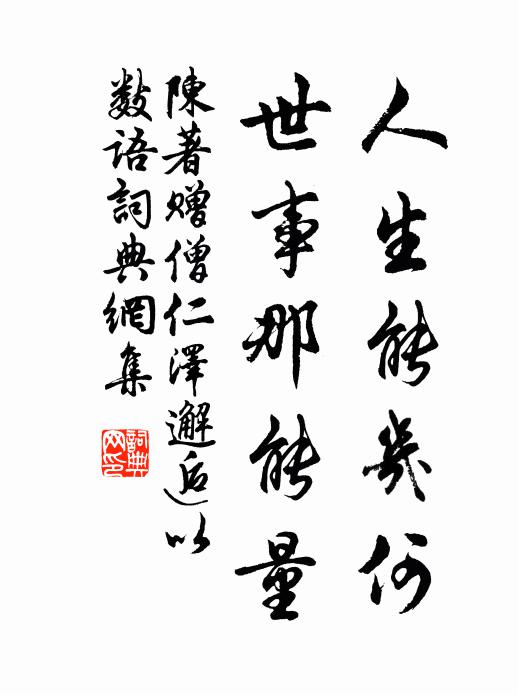 人生能幾何
世事那能量
陳著贈僧仁澤邂逅以
數語詞典網集
詞典
网印